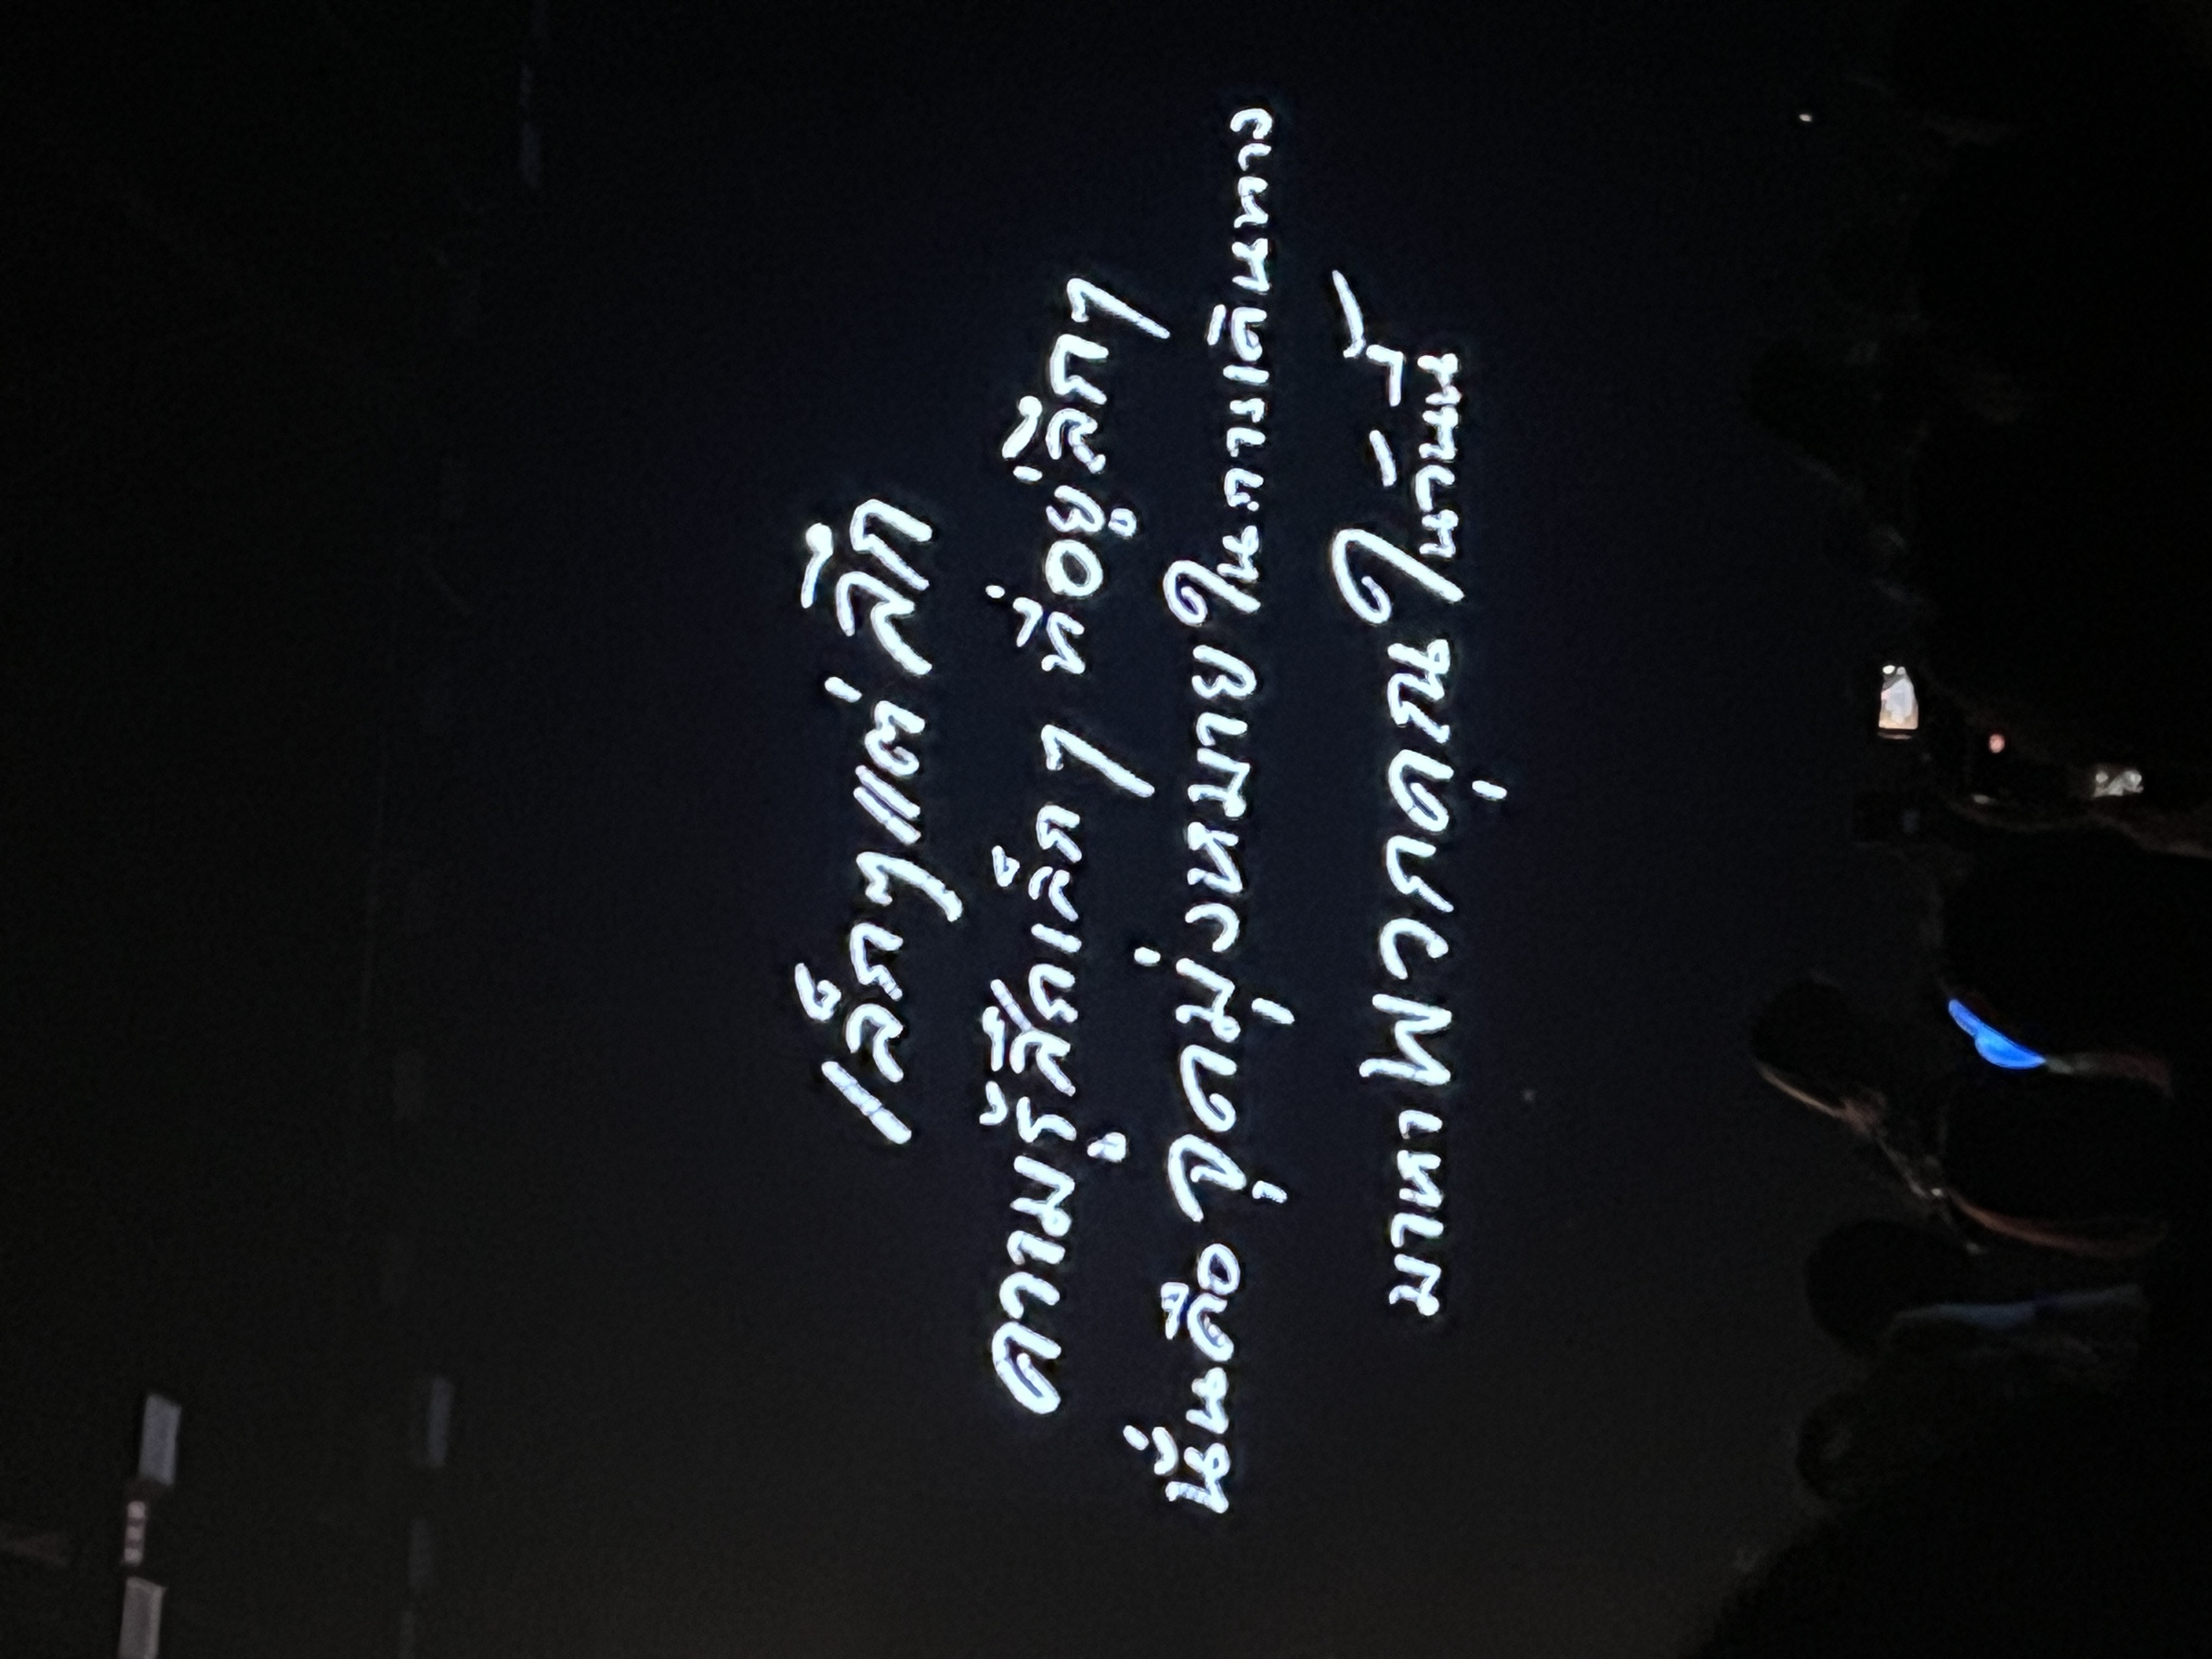 เล็กๆ แต่ ลึก
ความรู้สึกเล็ก ๆ ที่อยู่ลึกๆ
นั่นคือ จุดมุ่งหมาย ในการเดินทาง
มาหา พวกคุณ ในวันนี้